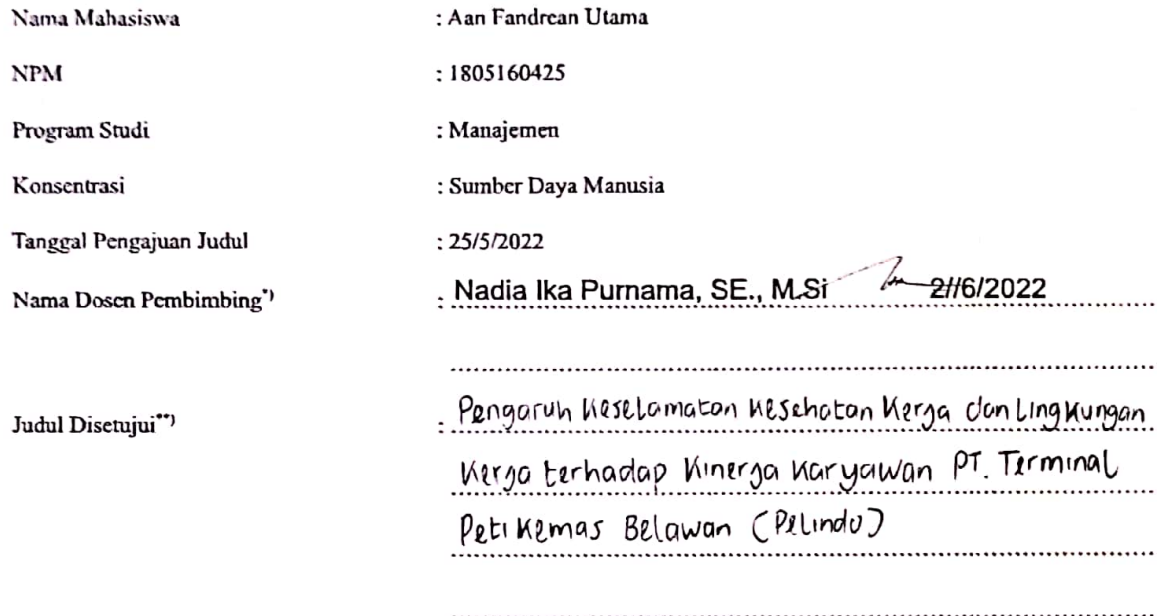 Nama Mahasiswa : Aan Fandrean Utama
NPM : 1805160425
Program Studi : Manajemen
Konsentrasi : Sumber Daya Manusia
Tanggal Pengajuan Judul : 25/5/2022
Nama Dosen Pembimbing*) : Nadia Ika Purnama, SE., M.Si 2//6/2022
Judul Disetujui**) : Pengaruh Keselamatan Kesehatan Kerja dan Lingkungan
Kerja terhadap Kinerja Karyawan PT. Terminal
Peti Kemas Belawan (Pelindo)